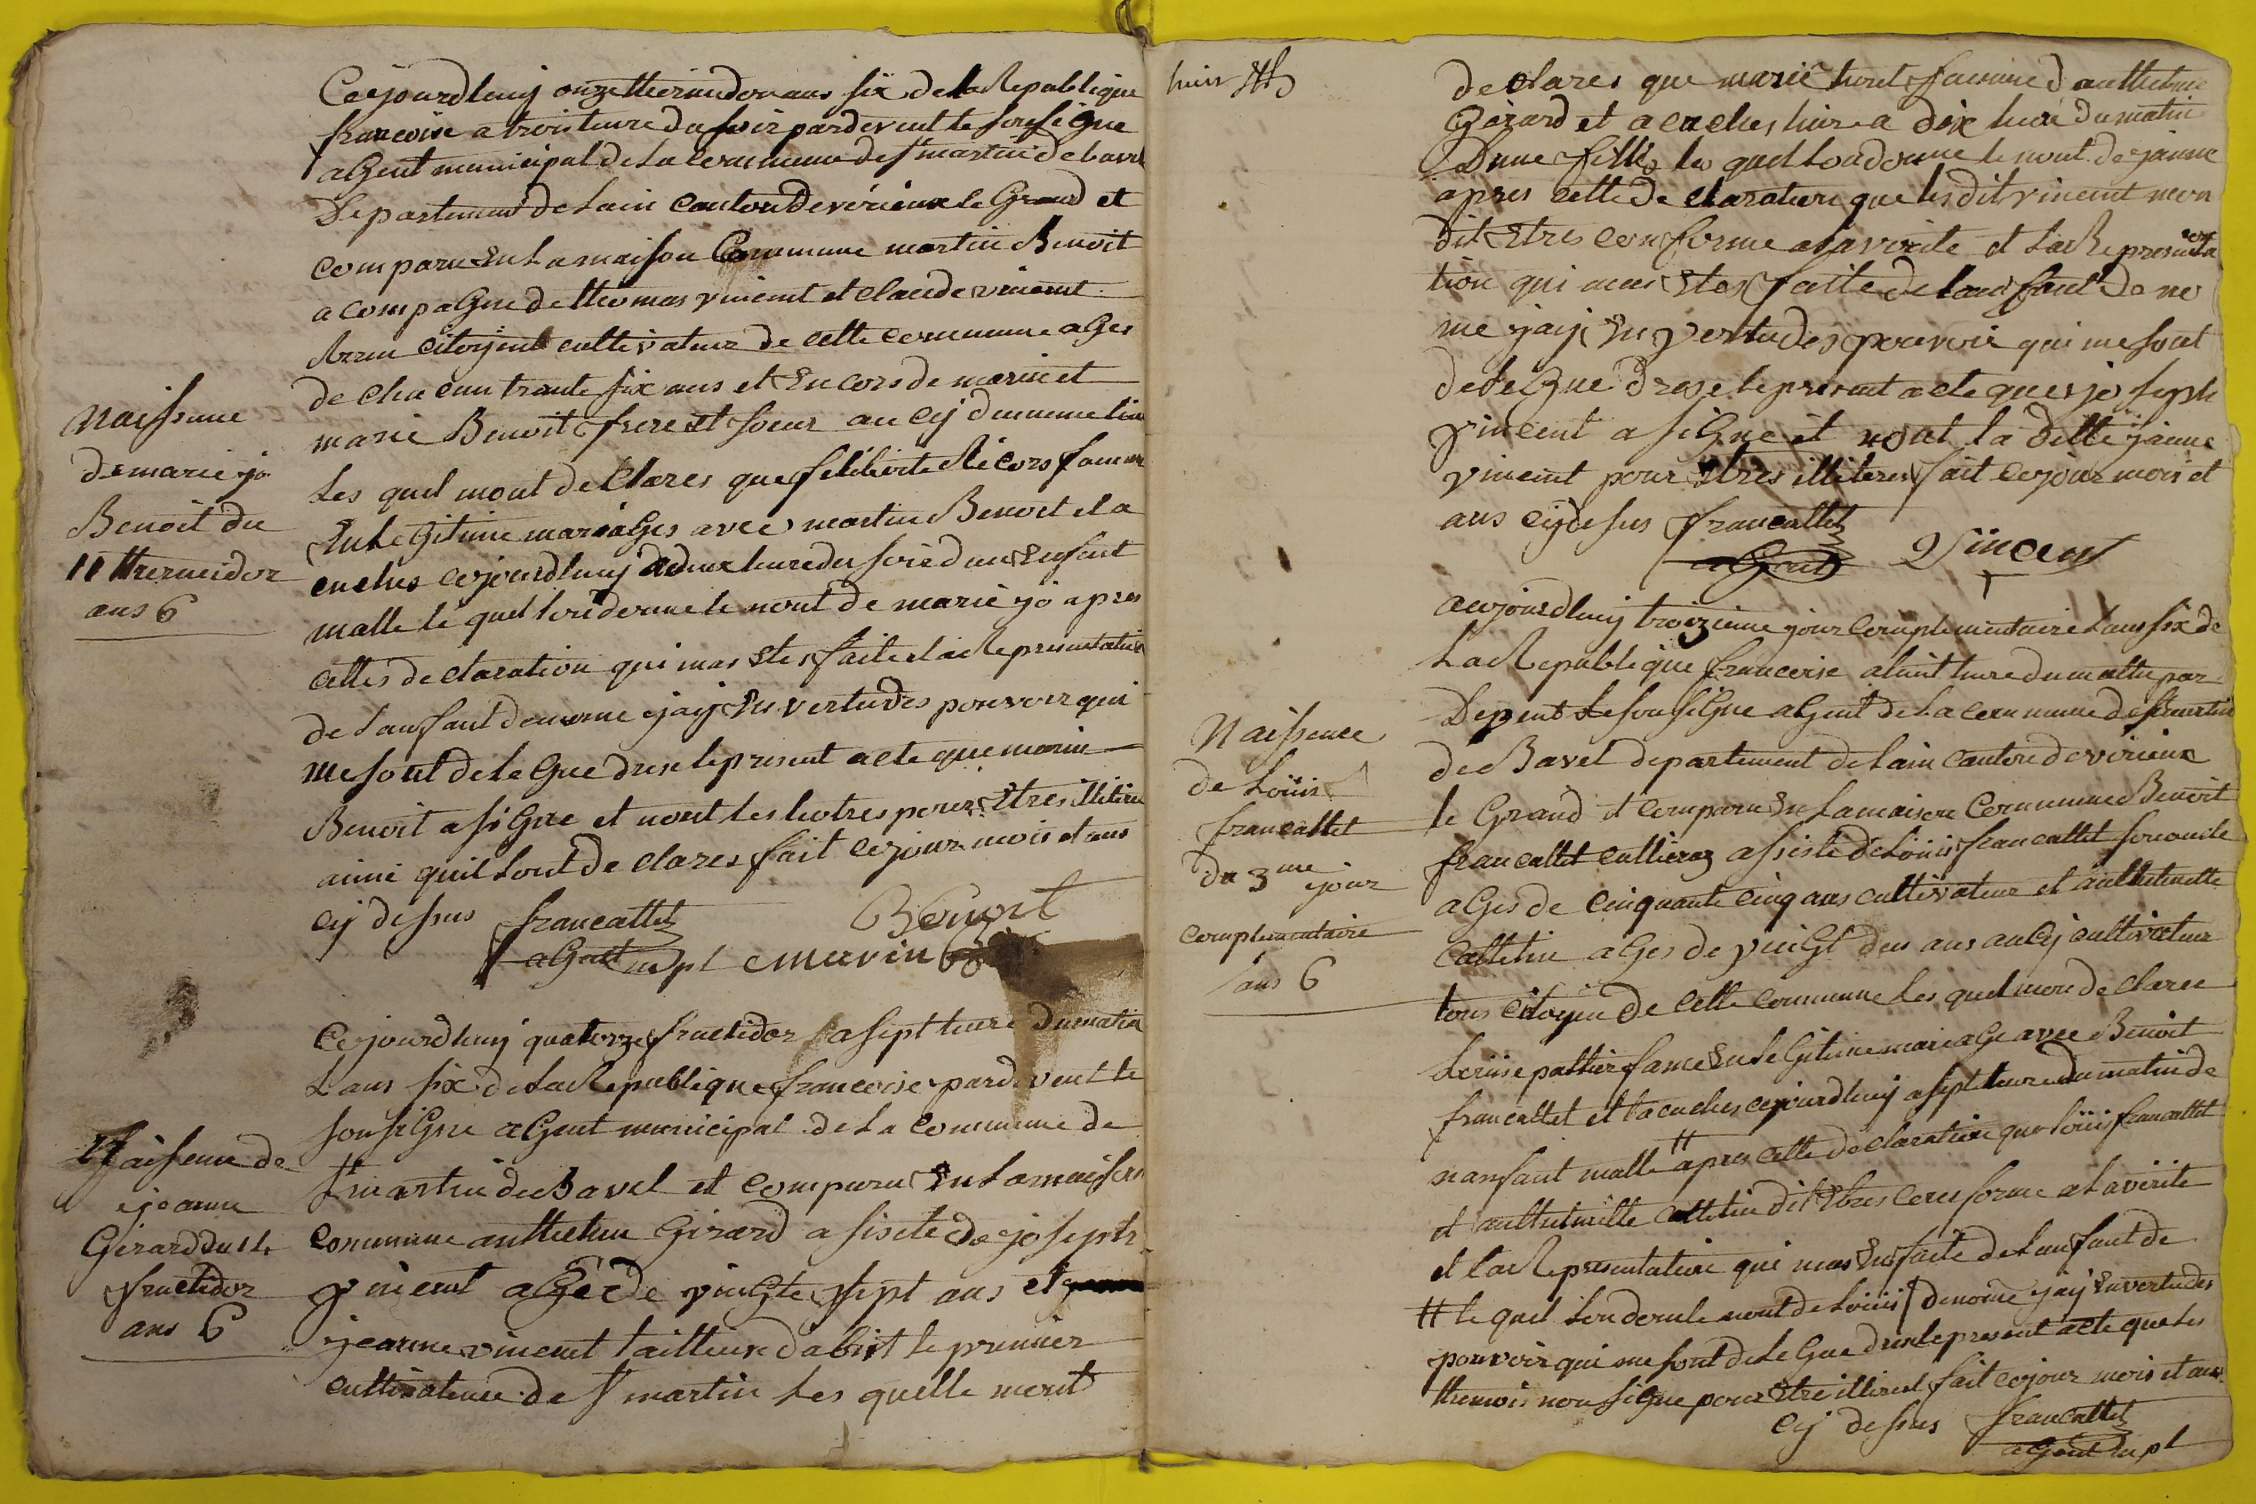 Cejourdhuij onze thermidor ans six de la Republique
francoise a trois heure du soir pardevent le sousigne
agent municipal de La commune de St martin de bavel
Departement de Lain canton de virieux le Grand et
comparu En La maison Commune martin Benoit
a compagne de thomas vincent et claude vincent
citoyent cultivateur de cette commune ages
de cha cun trante six ans et En cors de marin et
marie Benoit frere et soeur au cij
Les quel mont de Clares que felliberte Recors famme
En Le Gitime mariages avec martin Benoit et a
cuchee cejourdhuij a deux heure du soir dun Enfant
malle le quel lon donne le nont de marie jo apres
cettes de claration qui mas Etes faite et la Representation
de Lanfant denome jaij En vertu des pouvoir qui
me sont de le Gue dresse le present acte que marin
Benoit a si Gne et nont les hotres pour Etres illitere
ainsi quil Lont de clares fait ce jour mois et ans
cij dessus francallet Benoit
agent mpl marin
Naissance
de marie jo
Benoit du
11 thermidor
ans 6
Cejourdhuij quatorze fructidor a sept heure du matin
Lans six de La Republique francoise pardevent le
sousigne agent municipal de La commune de
St martin de Bavel et comparu En La maison
commune anthelme Girard a sisite de joseph
vincent agee de vingte sept ans et
jeanne vincent tailleur dabit le premier
cultivateur de St martin Les quelle mont
Naissance de
jeanne
Gerard du 14
fructidor
ans 6
huit
declares que marie famme danthelme
Gérard et a cuches hier a dix heure du matin
Dune fille la quel Lon donne le nont de jeanne
apres cette de claration que lesdit vincent mon
dit Etres conforme a la verite et la Represente
tion qui mas Etes faite de Lanfant De no
me jaij En vertu des pouvoir qui me sont
delegue Drese le present acte que joseph
vincent a signe et nont la ditte jeanne
vincent pour Etres illiteres fait cejour mois et
ans cij desus francallet
agent Vincent
aujourdhuij troizieme jour complementaire Lans six de
La Republique francoise a huit heure du matin par
Devent Le sousigne agent de La commune de St martin
de Bavel departement de Lain canton de virieux
le Grand et comparu En La maison Commune Benoit
francallet assiste de Louis francallet son oncle
ages de cinquante cinq ans cultivateur et anthelmette
calletin ages de vingt deu ans au cij cultivateur
tous citoyen de cette commune Les quel mon de claree
Louise pattier fame En Le Gitime mariage avec Benoit
francallet et la cuches cejourdhuij a sept heure du matin de
nanfant malle # apres cette de claration que Louis francallet
et anthelmette calletin dit Etres conforme a La vérite
et la Representation qui mas Etes faite de Lanfant de
# le quel Lon donne le nont de Louis / denome jaij En vertu des
pouvoir qui me sont de le Gue dresse le present acte que Les
themoin non signe pour Etre illiteret fait cejour mois et ans
cij dessus francallet
agent mpl
Naissence
de Louis
francallet
du 3me jour
complementaire
ans 6